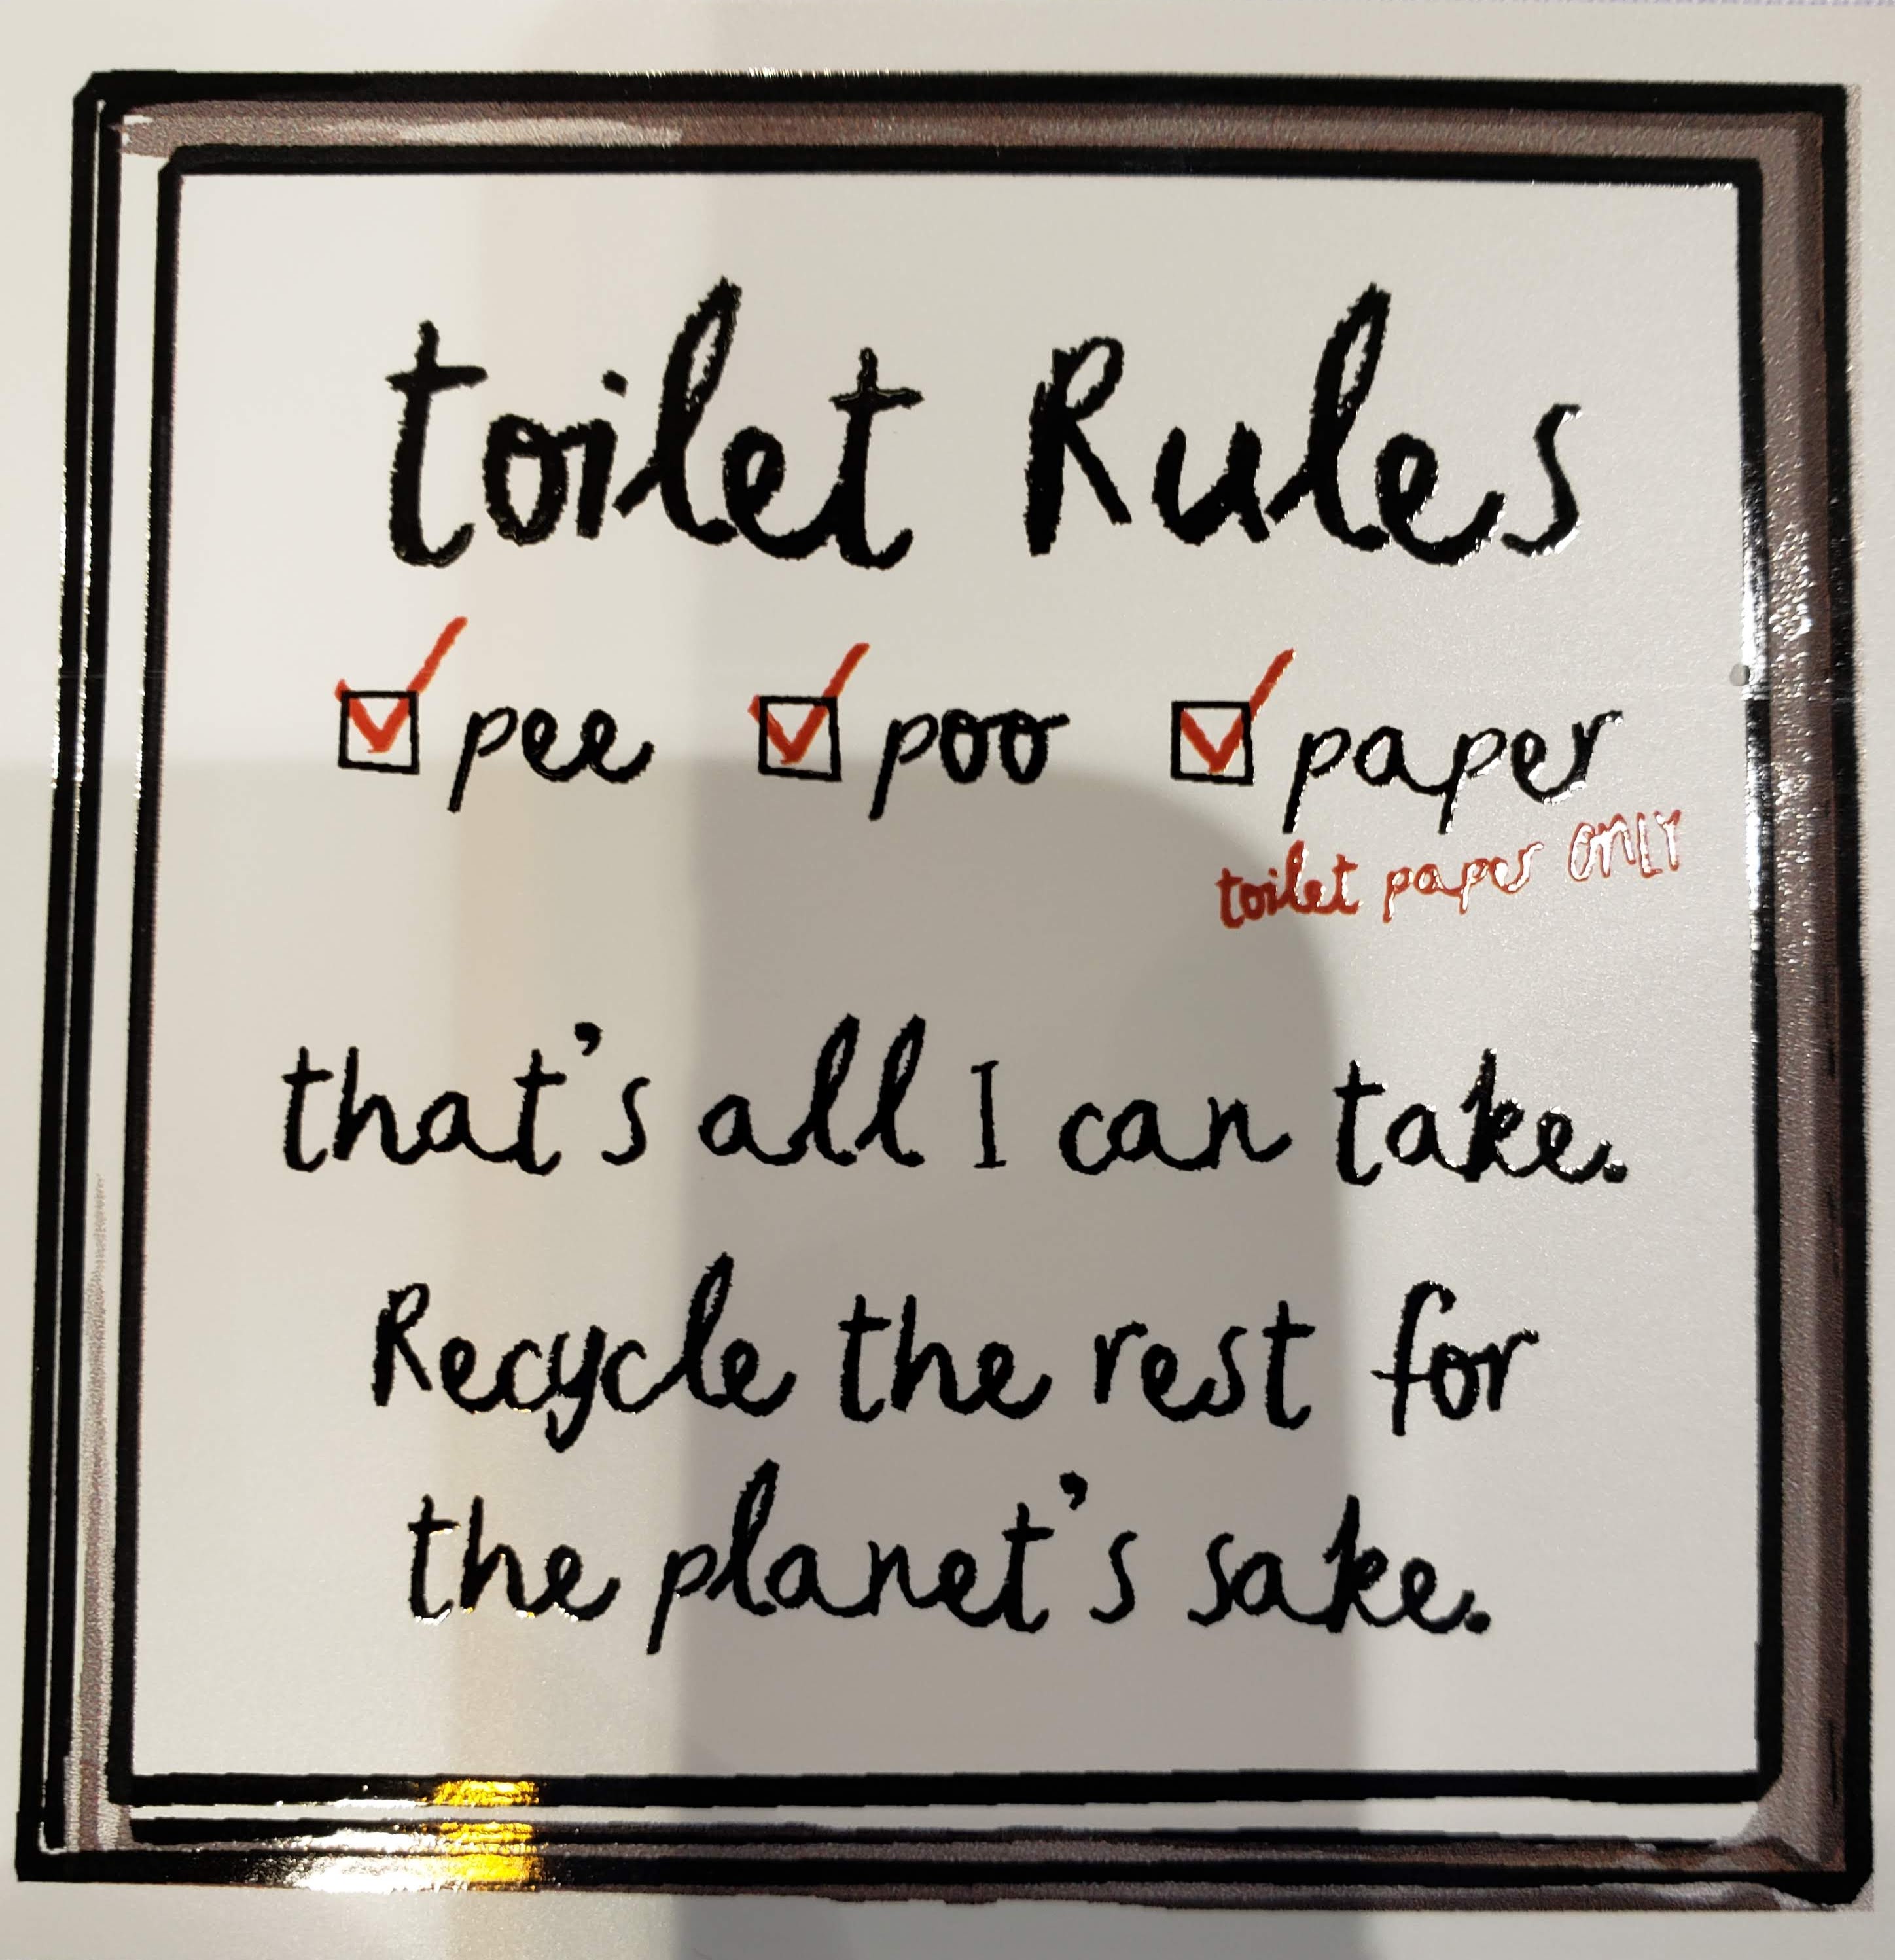 toilet Rules
pee poo paper
toilet paper ONLY
that's all I can take.
Recycle the rest for
the planet's sake.